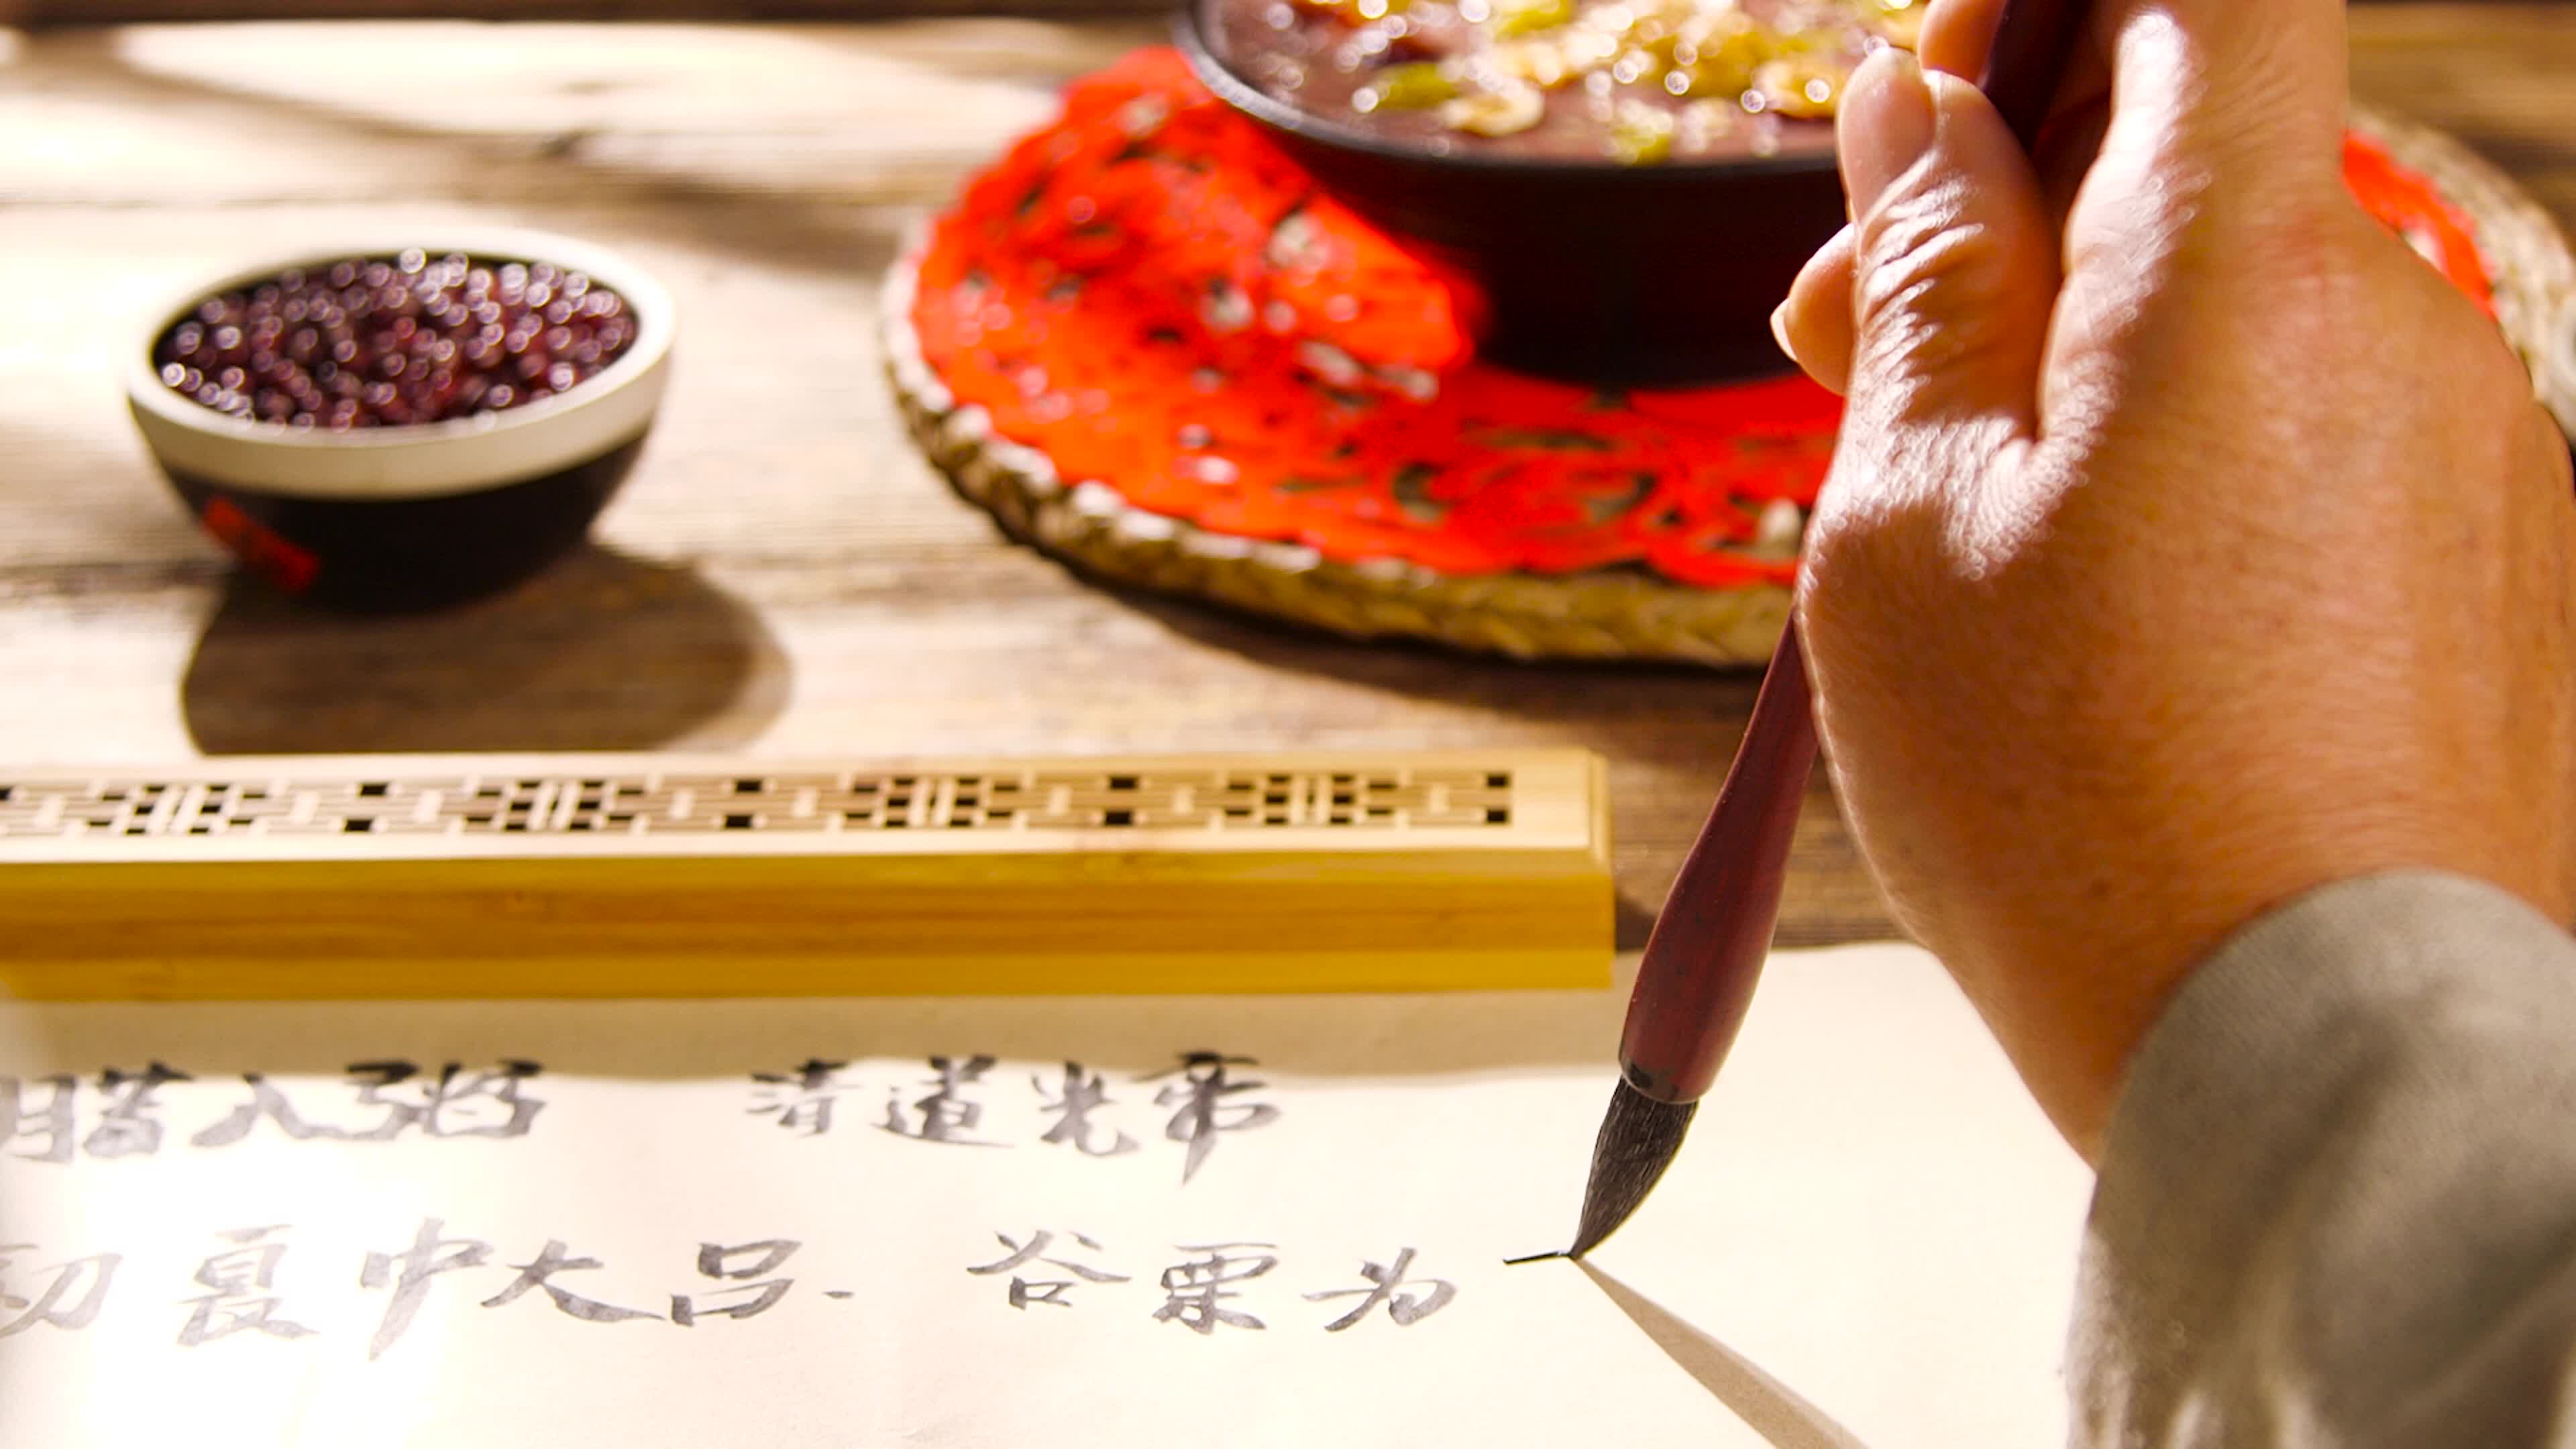 腊八粥 清道光帝
初夏中大吕. 谷粟为